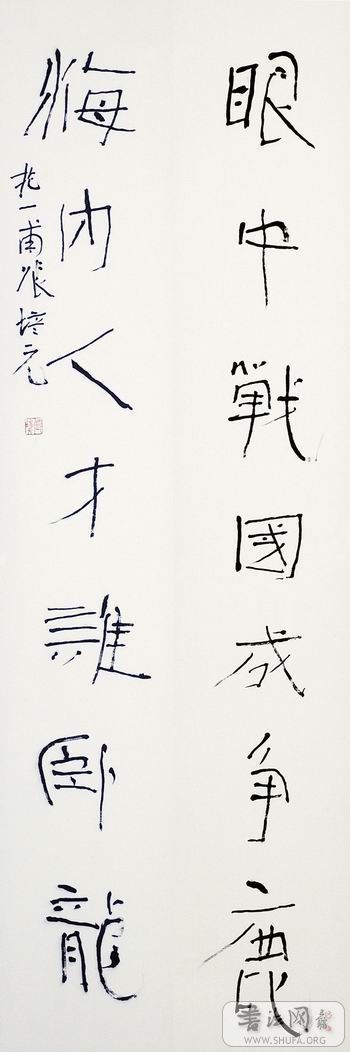 眼中戰國成争鹿
海内人才誰卧龍
抱一甫張培元
書法网
WWW.SHUFA.ORG